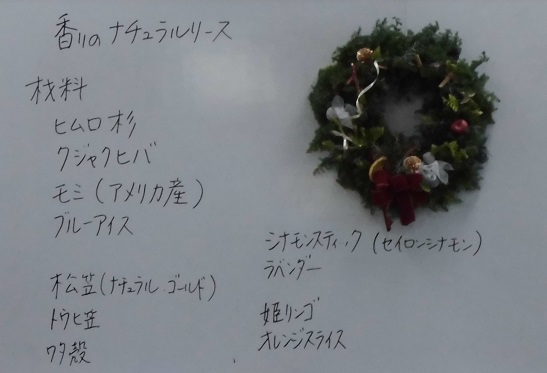 香りのナチュラルリース
材料
ヒムロ杉
クジャクヒバ
モミ(アメリカ産)
ブルーアイス
松笠(ナチュラル.ゴールド)
トウヒ笠
ワタ殻
シナモンスティック(セイロンシナモン)
ラベンダー
姫リンゴ
オレンジスライス